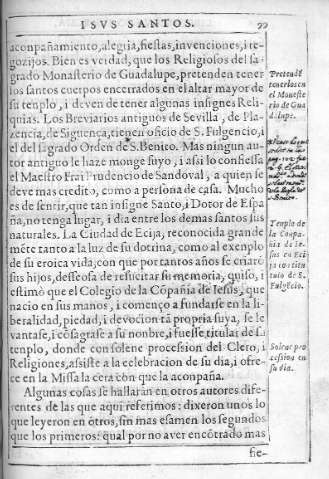 ISVS SANTOS.
99
acõpañamiento, alegria, fiestas, invenciones, i re-
gozijos. Bien es verdad, que los Religiosos del sa-
grado Monasterio de Guadalupe, pretenden tener
los santos cuerpos encerrados en el altar mayor de
su templo, i deven de tener algunas insignes Reli-
quias. Los Breviarios antiguos de Sevilla, de Pla-
zencia, de Siguença, tienen oficio de S. Fulgencio, i
el del sagrado Orden de S. Benito. Mas ningun au-
tor antiguo le haze monge suyo, i assi lo confiessa
el Maestro Frai Prudencio de Sandoval, a quien se
deve mas credito, como a persona de casa. Mucho
es de sentir, que tan insigne Santo, i Dotor de Espa
ña, no tenga lugar, i dia entre los demas santos sus
naturales. La Ciudad de Ecija, reconocida grande
mẽte tanto a la luz de su dotrina, como al exemplo
de su eroica vida, con que por tantos años se criarõ
sus hijos, desseosa de resucitar su memoria, quiso, i
estimò que el Colegio de la Cõpañia de Iesus, que
nacio en sus manos, i começo a fundarse en la li-
beralidad, piedad, i devocion tã propria suya, se le
vantase, i cõsagrase a su nonbre, i fuesse titular de su
templo, donde con solene procession del Clero, i
Religiones, assiste a la celebracion de su dia, i ofre-
ce en la Missa la cera con que la acompaña.
Algunas cosas se hallarán en otros autores dife-
rentes de las que aqui referimos: dixeron unos lo
que leyeron en otros, sin mas esamen los segundos
que los primeros: qual por no aver encõtrado mas
fie-
Pretendẽ
tenerlos en
el Moneste
rio de Gua
dalupe.
Templo de
la Conpa-
ñia de Ie-
sus en Eci
ja con titu
lo de S.
Fulgẽcio.
Solene pro
cession en
su dia.